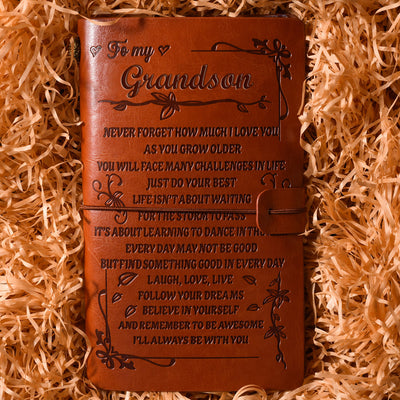 To my
Grandson
NEVER FORGET HOW MUCH I LOVE YOU
AS YOU GROW OLDER
YOU WILL FACE MANY CHALLENGES IN LIFE
JUST DO YOUR BEST
LIFE ISN'T ABOUT WAITING
FOR THE STORM TO PASS
IT'S ABOUT LEARNING TO DANCE IN TH
EVERY DAY MAY NOT BE GOOD
BUT FIND SOMETHING GOOD IN EVERY DAY
LAUGH, LOVE, LIVE
FOLLOW YOUR DREAMS
BELIEVE IN YOURSELF
AND REMEMBER TO BE AWESOME
I'LL ALWAYS BE WITH YOU